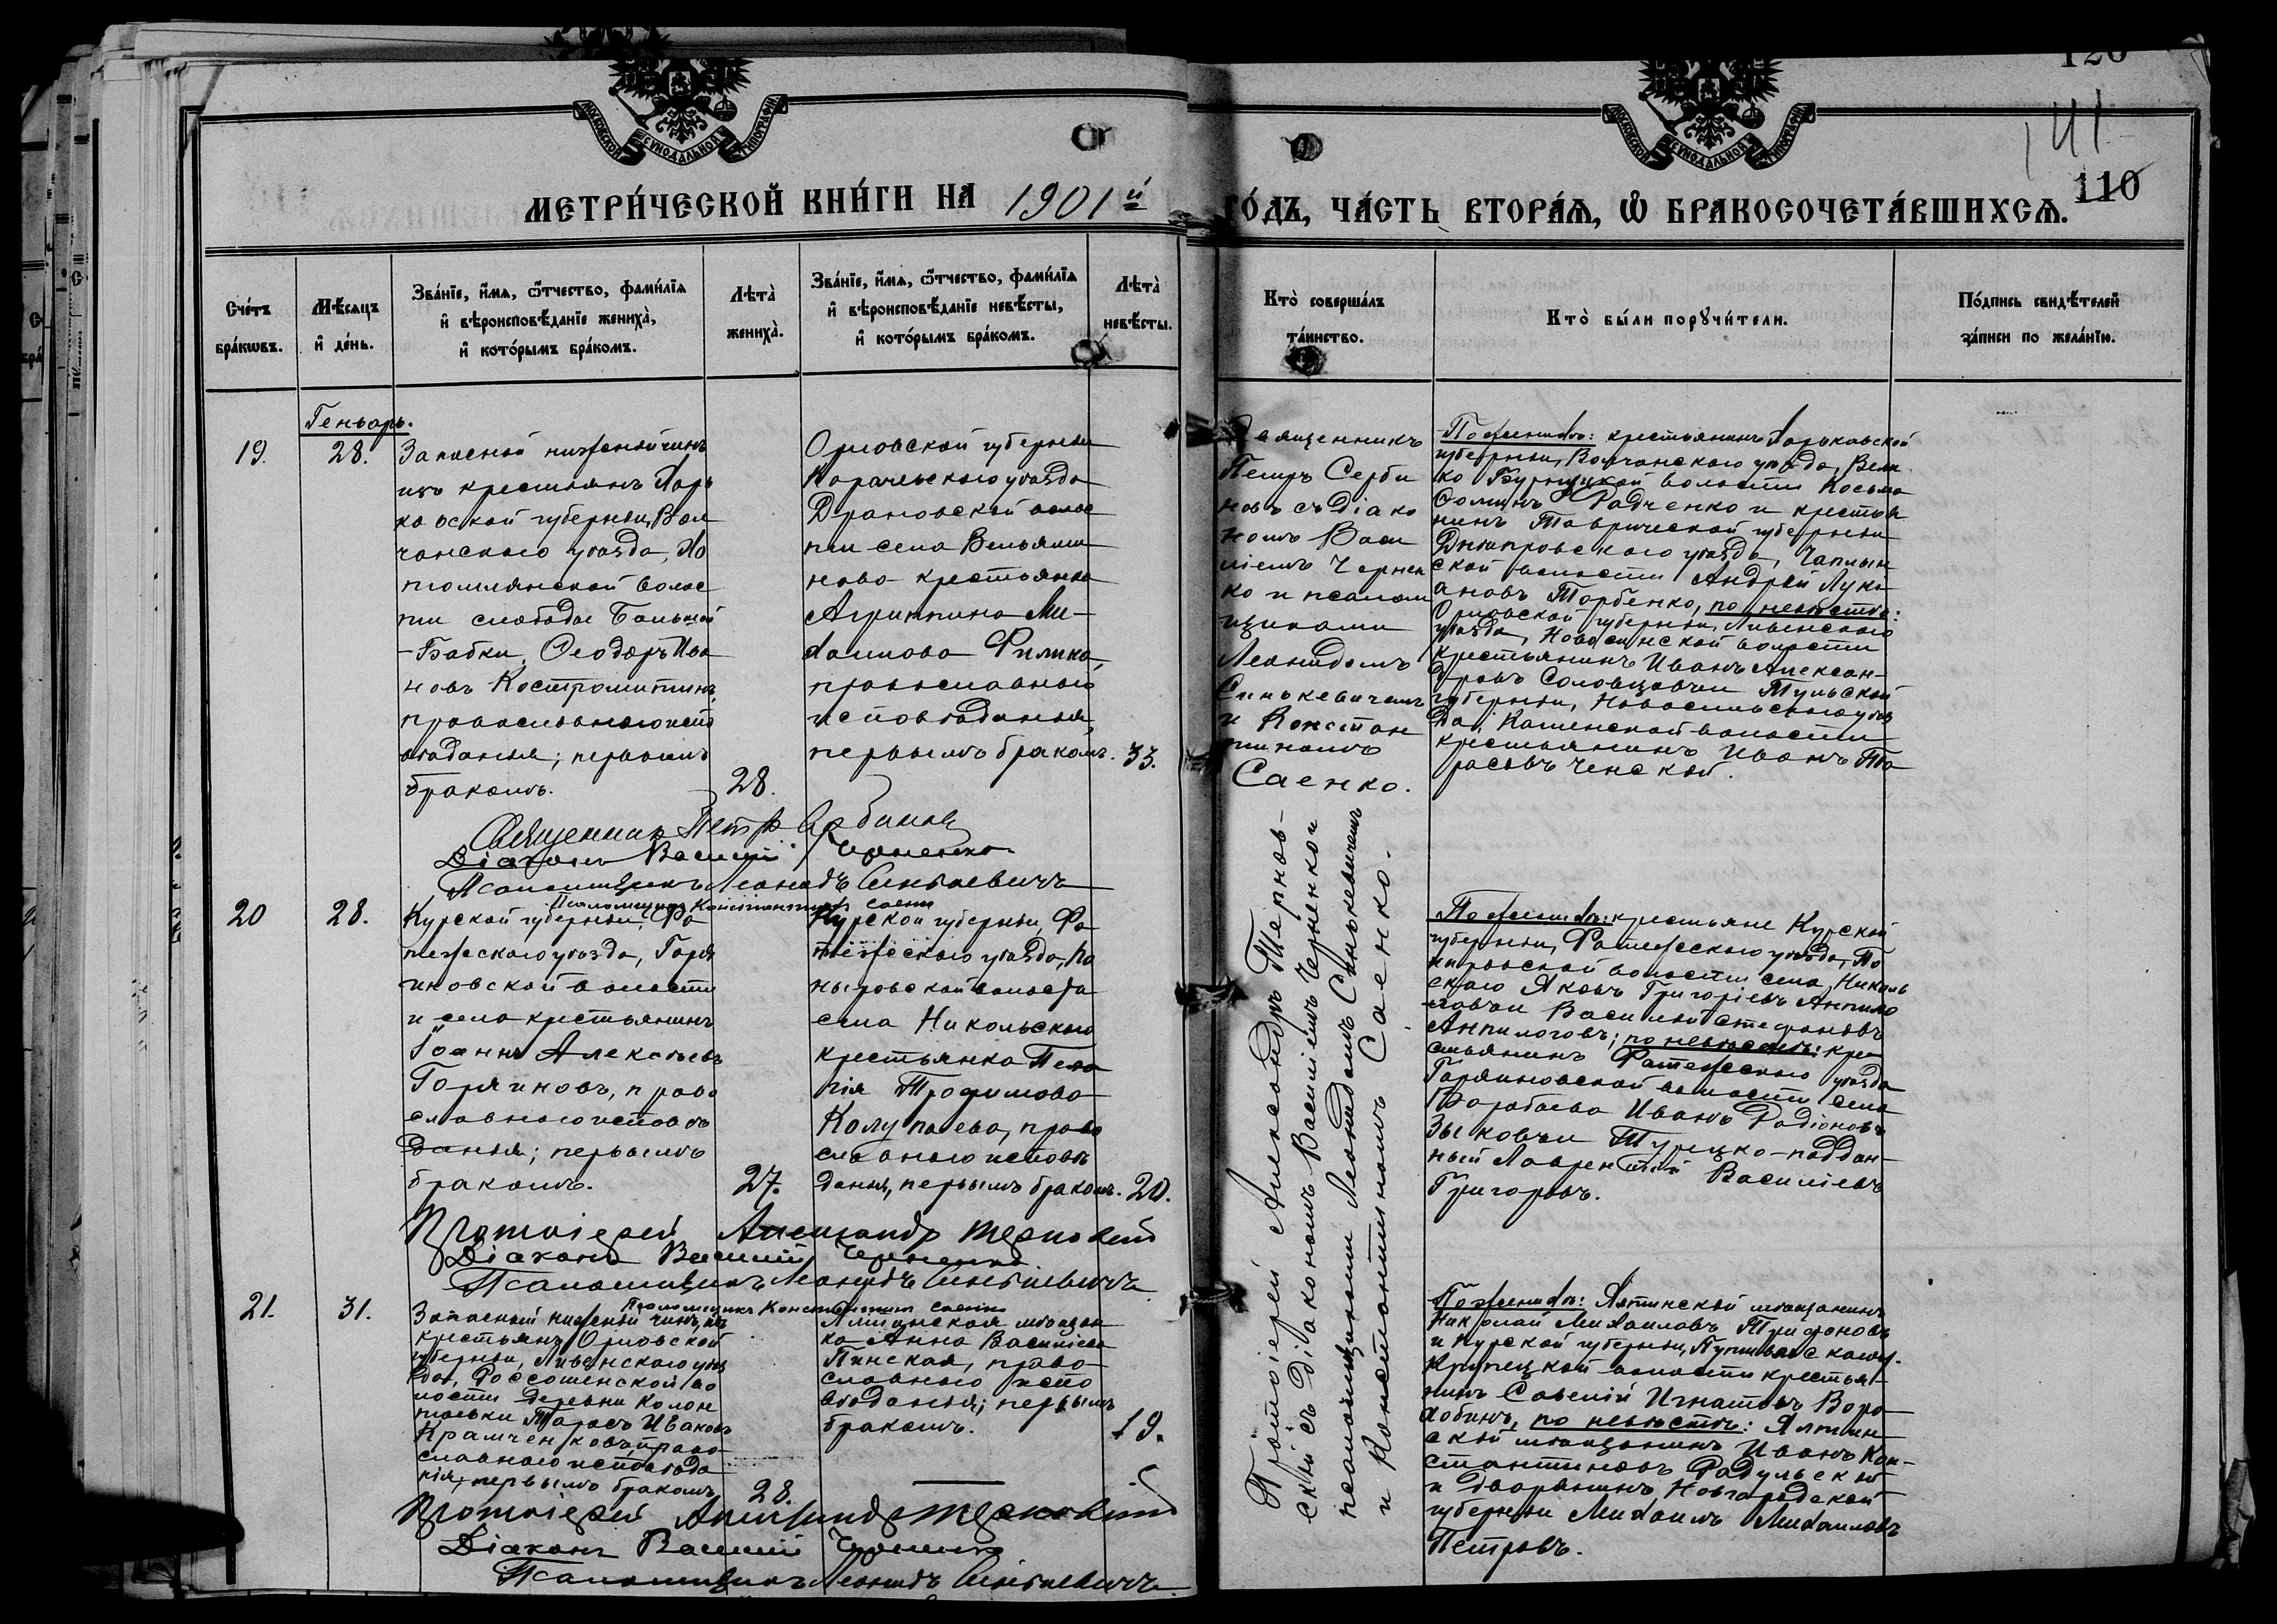 120
141
110
МОСКОВСКОЙ СѴНОДАЛЬНОЙ ТИПОГРАФІИ
МОСКОВСКОЙ СѴНОДАЛЬНОЙ ТИПОГРАФІИ
МЕТРИ́ЧЕСКОЙ КНИ́ГИ НА 1901й
ГО́ДЪ, ЧА́СТЬ ВТОРА́Я, Ѡ БРАКОСОЧЕТА́ВШИХСЯ.
Сче́тъ
бра́кѡвъ.
Мѣ́сяцъ
и҆ де́нь.
Зва́нїе, и҆́мя, ѻ҆́тчество, фами́лїя
и҆ вѣроисповѣ́данїе жениха̀,
и҆ кото́рымъ бра́комъ.
Лѣта̀
жениха̀.
Зва́нїе, и҆́мя, ѻ҆́тчество, фами́лїя
и҆ вѣроисповѣ́данїе невѣ́сты,
и҆ кото́рымъ бра́комъ.
Лѣта̀
невѣ́сты.
Кто̀ соверша́лъ
та́инство.
Кто̀ бы́ли порꙋчи́тели.
По́дпись свидѣ́телей
за́писи по жела́нїю.
Геньварь.
19.
28.
Запасной нижній чинъ
изъ крестьянъ Харь
ковской губерніи, Вол
чанскаго уѣзда, Хо
томлянской волос
ти слободы Большой
-Бабки, Ѳеодоръ Ива
новъ Костромитинъ,
православнаго испо
вѣданія; первымъ
бракомъ.
28.
Орловской губерніи
Карачевскаго уѣзда
Драновской волос
ти села Вельями
нова крестьянка
Агриппина Ми-
хаилова Филина,
православнаго
исповѣданія,
первымъ бракомъ.
33.
Священникъ
Петръ Серби
новъ съ діако
номъ Васи
ліемъ Чернен
ко и псалом
щиками
Леонидомъ
Синькевичемъ
и Констан
тиномъ
Саенко.
По женихѣ: крестьянинъ Харьковской
губерніи, Волчанскаго уѣзда, Вели
ко Бурлуцкой волости Косьма
Ѳоминъ Радченко и крестья
нинъ Таврической губерніи
Днѣпровскаго уѣзда, Чаплын
ской волости Андрей Луки
ановъ Торбенко, по невѣстѣ:
Орловской губерніи, Ливенскаго
уѣзда, Новосинской волости
крестьянинъ Иванъ Алексан-
дровъ Соловцовъ и Тульской
губерніи, Новосильскаго уѣз
да, Каменской волости
крестьянинъ Иванъ Та
расовъ Ченской.
Священникъ Петръ Сербиновъ
Діаконъ Василій Черненко
Псаломщикъ Леонидъ Синькевичъ
Псаломщикъ Константинъ Саенко
20
28.
Курской губерніи, Фа
тежскаго уѣзда, Горя
иновской волости
и села крестьянинъ
Іоаннъ Алексѣевъ
Горяиновъ, право
славнаго исповѣ
данія; первымъ
бракомъ.
27.
Курской губерніи, Фа
тежскаго уѣзда, По
ныровской волости
села Никольскаго
крестьянка Пела
гія Трофимова
Колупаева, право
славнаго исповѣ
данія, первымъ бракомъ.
20.
Протоіерей Александръ Тернов-
скій съ діакономъ Василіемъ Черненко и
псаломщиками Леонидомъ Синькевичемъ
и Константиномъ Саенко.
По женихѣ: крестьяне Курской
губерніи, Фатежскаго уѣзда, По
ныровской волости села Николь
скаго Яковъ Григорьевъ Анпило
говъ и Василій Стефановъ
Анпилоговъ; по невѣстѣ: кре
стьянинъ Фатежскаго уѣзда
Горяиновской волости села
Барабаева Иванъ Радіоновъ
Зыковъ и Турецко-поддан-
ный Лаврентій Василіевъ
Григоровъ.
Протоіерей Александр Терновскій
Діаконъ Василій Черненко
Псаломщикъ Леонидъ Синькевичъ
Псаломщикъ Константинъ Саенко
21.
31.
Запасный нижній чинъ, изъ
крестьянъ Орловской
губерніи, Ливенскаго уѣз
да, Россошенской во
лости деревни
Тарасъ Ивановъ
православнаго исповѣда
нія, первымъ бракомъ
28.
Ялтинская мѣщан
ка Анна Василіева
Пинская, право-
славнаго испо
вѣданія; первымъ
бракомъ.
19.
По женихѣ: Ялтинской мѣщанинъ
Николай Михаиловъ Трифоновъ
и Курской губерніи, Путивльскаго у.
Крупецкой волости крестья-
нинъ Савелій Игнатовъ Воро
хобинъ, по невѣстѣ: Ялтин-
ской мѣщанинъ Иванъ Кон-
стантиновъ Радульской
и дворянинъ Новгородской
губерніи Михаилъ Михаиловъ
Петровъ.
Протоіерей Александръ Терновскій
Діаконъ Василій Черненко
Псаломщикъ Леонидъ Синькевичъ